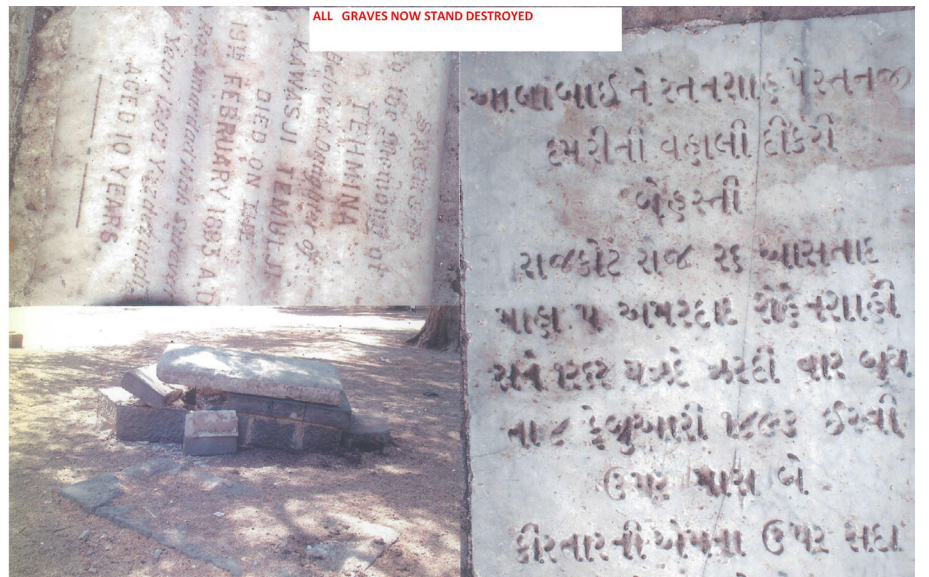 ALL GRAVES NOW STAND DESTROYED
to the Memory of
TEHMINA
Beloved Daughter of
KAWASJI TEMULJI
DIED ON THE
19TH FEBRUARY 1883 A.D
Year
AGED 10 YEARS
આબાંબાઈ તે રતનશાહ પેસતનજી
દમરીની વહાલી દીકરી
બેહસ્તી
રાજકોટ રોજ ૨૬ આસતાદ
માહા ૫ અમરદાદ શેહેનશાહી
સને ૧૨૬૨ યજદે જરદી વાર બુધ
તા ૮ ફેબ્રુઆરી ૧૮૯૩ ઈસ્વી
ઉમર માસ બે
કીરતારની એમના ઉપર સદા